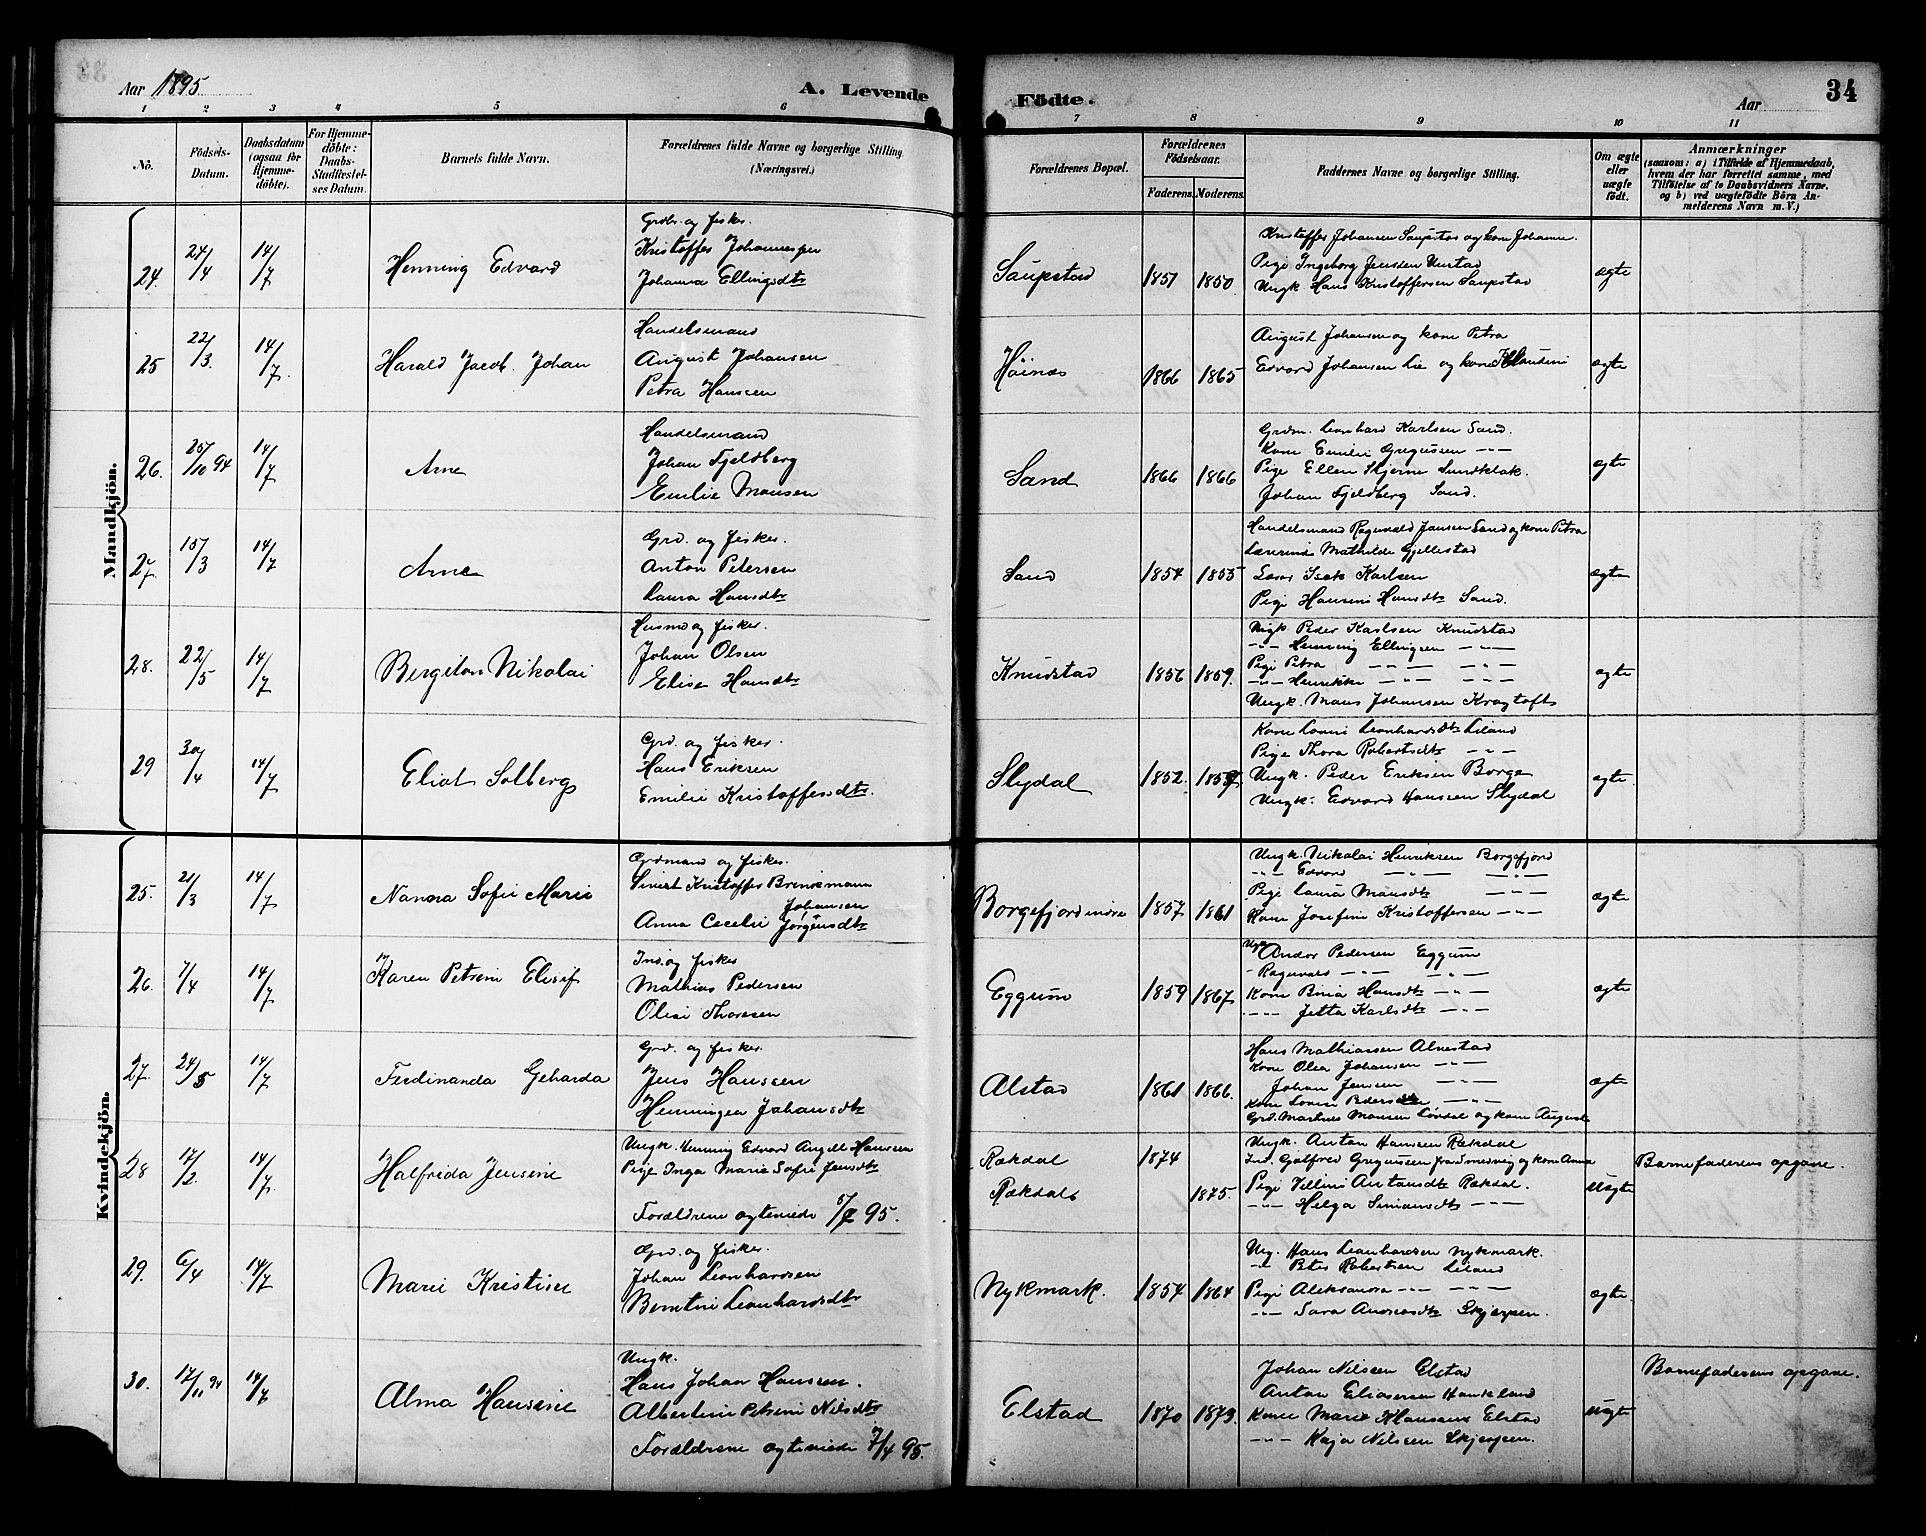 Aar 1895
A. Levende
Födte.
Aar
34
1 2 3 4 5 6 7 8 9 10 11
No.
Födsels-
Datum.
Daabsdatum
(ogsaa for
Hjemme-
döbte).
For Hjemme-
döbte:
Daabs-
Stadfæstel-
ses Datum.
Barnets fulde Navn.
Forældrenes fulde Navne og borgerlige Stilling
(Næringsvei.)
Forældrenes Bopæl.
Forældrenes
Födselsaar.
Faderens. Moderens.
Faddernes Navne og borgerlige Stilling.
Om ægte
eller
uægte
födt.
Anmærkninger
(saasom: a) i Tilfælde af Hjemmedaab,
hvem der har forrettet samme, med
Tilföielse af to Daabsvidners Navne.
og b) ved uægtefödte Börn An-
melderens Navn m. V.)
Mandkjön.
24. 24/4 14/7 Henning Edvard
Grdbr. og fisker.
Kristoffer Johannessen
Johanna Ellingsdtr
Saupstad 1851 1850
Kristoffer Johansen Saupstad og kone Johanna.
Pige Ingeborg Jensen Unstad
Ungk Hans Kristoffersen Saupstad
ægte
25 22/3. 14/7. Harald Jacob. Johan
Handelsmand
August Johansen
Petra Hansen
Höinæs 1866 1865
August Johansen og kone Petra
Edvard Johansen Lie og kone Klaudine
ægte
26. 25/10 94 14/7 Arne
Handelsmand
Johan Fjeldberg
Emilie Monsen
Sand 1866 1866
Grdm. Leonhard Karlsen Sand.
Kone Emilie Gregussen -"-
Pige Ellen Skjerne Sundklak.
Johan Fjeldberg Sand.
ægte
27. 15/3 14/7 Arne
Grd. og fisker.
Anton Petersen
Laura Hansdtr
Sand 1854 1855
Handelsmand Ragnvald Jansen Sand og kone Petra
Lærerinde Mathilde Gjellestad
Isak Karlsen
Pige Hansine Hansdtr Sand.
ægte
28. 22/5 14/7 Bergiton Nikolai
Husmd og fisker.
Johan Olsen
Elise Hansdtr
Knudstad 1856 1859.
Ungk Peder Karlsen Knudstad
-"- Henning Ellingsen -"-
Pige Petra -"- -"-
-"- Henrikke -"- -"-
Ungk. Mons Johansen Kragtoft
ægte
29 30/4 14/7 Eliot Solberg
Grd. og fisker.
Hans Eriksen
Emilie Kristoffersdtr.
Slydal 1852. 1859
Kone Lovise Leonhardsdtr Leland
Pige Thora Robertsdtr -"-
Ungk. Peder Eriksen Borge
Ungk. Edvard Hanssen Slydal
ægte.
Kvindekjön.
25. 21/3 14/7 Nanna Sofie Marie
Grdmand og fisker.
Sivert Kristoffer Brinkmann
Johansen
Anna Cecelie Jörgensdtr
Borgefjord indre 1857 1861
Ungk. Nikolai Henriksen Borgefjord
-"- Edvard -"- -"-
Pige Laura Monsdtr -"-
Kone Josefine Kristoffersen -"-
ægte
26. 7/4 14/7 Karen Petrine Elisif
Inds. og fisker
Mathias Pedersen
Olise Thoresen
Eggum 1859 1867
Ungk Andor Pedersen Eggum
- Ragnvald -"- -"-
Kone Hansdtr -"-
-"- Jetta Karlsdtr -"-
ægte
27. 24/5 14/7 Ferdinanda Geharda
Grd. og fisker.
Jens Hanssen
Henningea Johansdtr
Alstad 1861 1866.
Hans Mathiassen Alvestad
Kone Olea Johansen -"-
Johan Jensen -"-
Kone Lovise Pedersen -"-
Grd. Martines Monsen Löndal og kone Auguste
ægte
28 17/2. 14/7. Halfrida Jensine
Ungk. Henning Edvard Angell Hanssen
Pige Inga Marie Sofie Jensdtr
Forældrene ægteviede 5/7 95.
Rækdal
Rækdal 1874 1875.
Ungk. Anton Hansen Rækdal
Ind. Galfred Gregussen fra Smedvig og kone Anna
Pige Velline Antonsdtr Rækdal.
-"- Helga Simonsdtr -"-
Uægte
Barnefaderens opgave.
29. 6/4 14/7 Marie Kristine
Grd. og fisker.
Johan Leonhardsen
Berntine Leonhardsdtr
Nykmark. 1854 1864
Ung. Hans Leonhardsen Nykmark.
-"- Peter Robertsen Leland
Pige Aleksandra -"- -"-
-"- Sara Andreasdtr Skjerpen.
ægte.
30. 17/11 94 14/7 Alma Hansine
Ungk.
Hans Johan Hansen.
Albertine Petrine Nilsdtr
Forældrene ægteviede 7/4 95.
Elstad 1870 1873.
Johan Nilssen Elstad
Anton Eliasersen Haukland
Kone Marie Klaussen Elstad
-"- Kaja Nilssen Skjerpen.
uægte
Barnefaderens opgave.